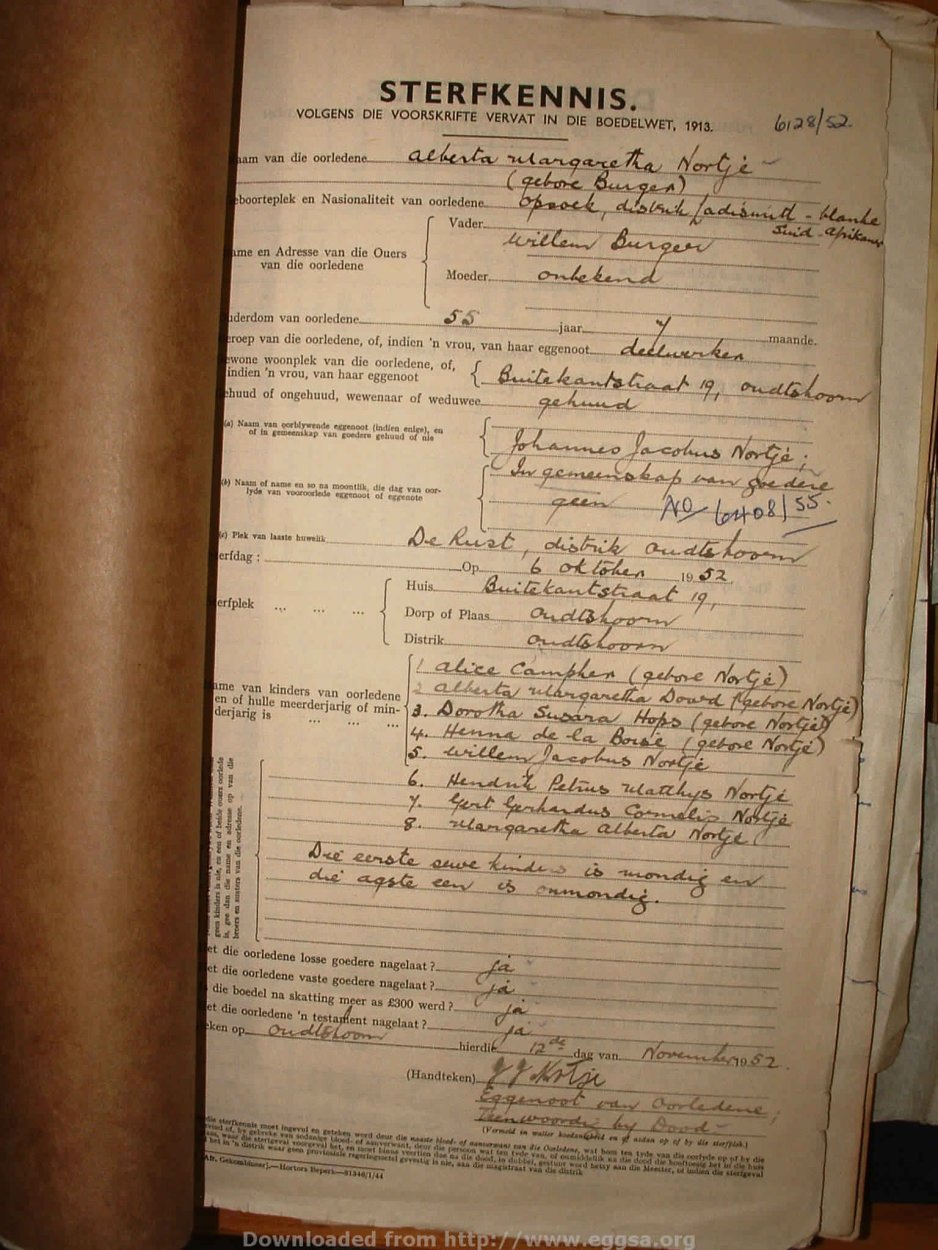 STERFKENNIS.
VOLGENS DIE VOORSKRIFTE VERVAT IN DIE BOEDELWET, 1913. 6128/52
aam van die oorledene Alberta Margaretha Nortjé
(gebore Burger)
eboorteplek en Nasionaliteit van oorledene Opsoek, distrik Ladismith - blanke
Suid-Afrikaner
Vader
Willem Burger
ame en Adresse van die Ouers
van die oorledene
Moeder onbekend
uderdom van oorledene 55 jaar 7 maande.
eroep van die oorledene, of, indien 'n vrou, van haar eggenoot deelwerker
ewone woonplek van die oorledene, of,
indien 'n vrou, van haar eggenoot Buitekantstraat 19, Oudtshoorn
ehuud of ongehuud, wewenaar of weduwee gehuud
(a) Naam van oorblywende eggenoot (indien enige), en
of in gemeenskap van goedere gehuud of nie Johannes Jacobus Nortjé;
In gemeenskap van goedere
(b) Naam of name en so na moontlik, die dag van oor-
lyde van vooroorlede eggenoot of eggenote geen No 6408/55.
(c) Plek van laaste huwelik De Rust, distrik Oudtshoorn
erfdag : Op 6 Oktober 1952.
Huis Buitekantstraat 19,
erfplek ... ... ... Dorp of Plaas Oudtshoorn
Distrik Oudtshoorn
1. Alice Campher (gebore Nortjé)
ame van kinders van oorledene 2 Alberta Margaretha Dowd (gebore Nortjé)
en of hulle meerderjarig of min- 3. Dorotha Susara Hops (gebore Nortjé)
derjarig is ... ... ... 4. Henna de la (gebore Nortjé)
5. Willem Jacobus Nortjé
6. Hendrik Petrus Matthys Nortjé
7. Gert Gerhardus Cornelis Nortjé
8. Margaretha Alberta Nortjé
geen kinders is nie, en een of beide ouers oorlede
is, gee dan die name en adresse op van die
broers en susters van die oorledene.
Die eerste sewe kinders is mondig en
die agste een is onmondig.
et die oorledene losse goedere nagelaat? ja
et die oorledene vaste goedere nagelaat? ja
die boedel na skatting meer as £300 werd? ja
et die oorledene 'n testament nagelaat? ja
eken op Oudtshoorn hierdie 12de dag van November 1952.
(Handteken) J J Nortje
Eggenoot van Oorledene;
Teenwoordig by Dood
(Vermeld in watter hoedanigheid en of aidan op of by die sterfplek.)
die sterfkennis moet ingevul en geteken word deur die naaste bloed- of aanverwant van die Oorledene, wat
Afr. Gekombineer].—Hortors Beperk—81346/1/44
Downloaded from http://www.eggsa.org